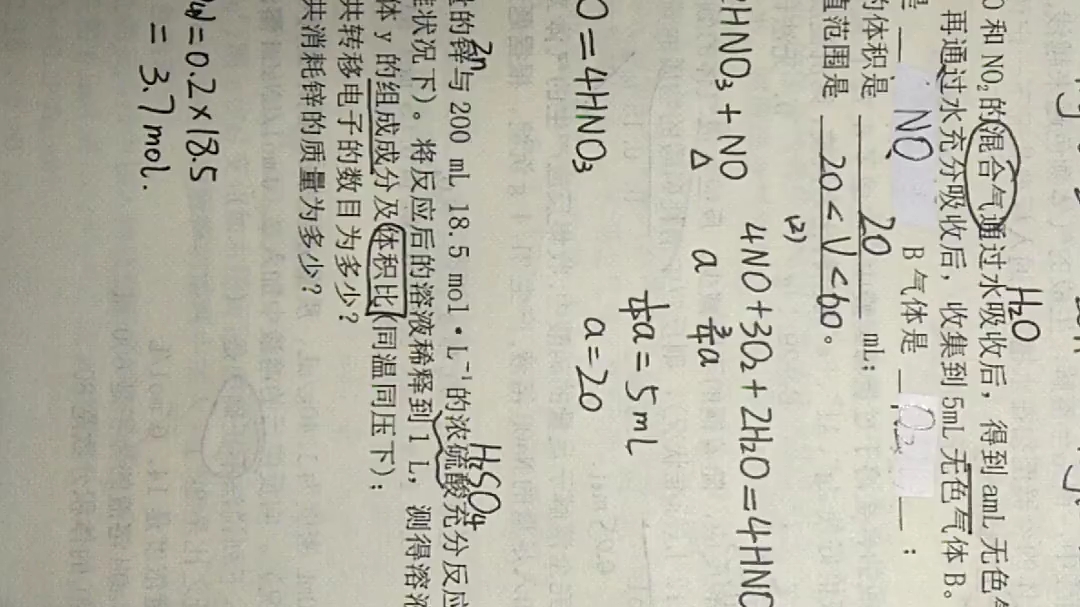 O 和 NO₂的混合气通过水吸收后，得到 amL 无色气
H₂O
再通过水充分吸收后，收集到 5mL 无色气体 B。
是 NO B 气体是 O₂ ：
的体积是 20 mL；
值范围是 20<V<60 。
(2) 4NO+3O₂+2H₂O=4HNO
2HNO₃+NO
△ a 3/4a
1/4a=5mL
a=20
O=4HNO₃
Zn H₂SO₄
量的锌与 200 mL 18.5 mol·L⁻¹的浓硫酸充分反应
准状况下）。将反应后的溶液稀释到 1 L，测得溶液
体 y 的组成成分及体积比(同温同压下)；
共转移电子的数目为多少？
共消耗锌的质量为多少？
=0.2×18.5
=3.7mol.